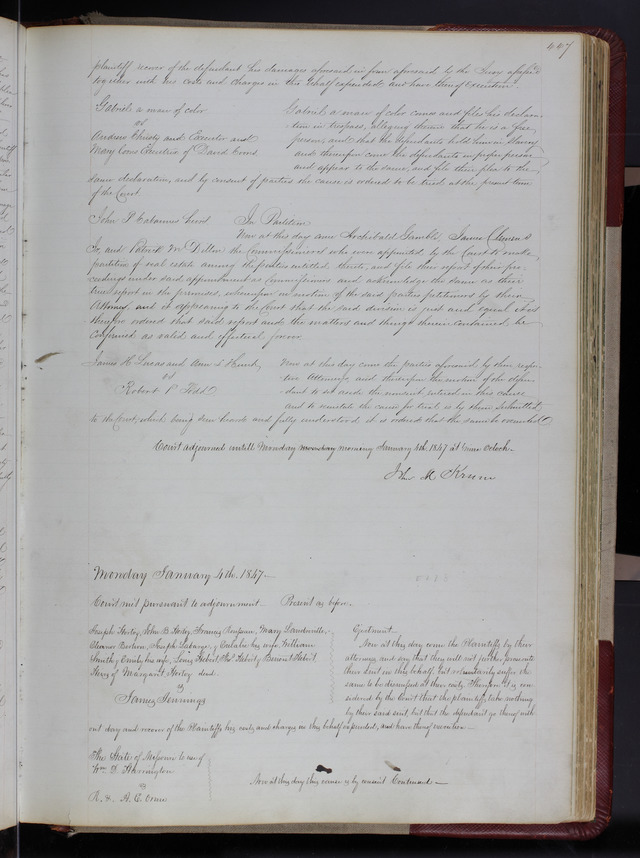 447
plaintiff recover of the defendant his damages aforesaid in form aforesaid by the Jury assessed
together with his costs and charges in this behalf expended and have thereof execution
Gabriel a man of color
vs
Andrew Christy and Executor and
Mary Coons Executrix of David Coons
Gabriel a man of color comes and files his declara-
-tion in trespass, alleging therein that he is a free
person, and that the defendants hold him in Slavery
and thereupon come the defendants in proper person
and appear to the same, and file their plea to the
same declaration, and by consent of parties the cause is ordered to be tried at the present term
of the Court
John P. Cabanne
In Partition
Now at this day come Archibald Gamble, James Clemens
Jr, and Patrick M. Dillon the Commissioners who were appointed by the Court to make
partition of real estate among the parties entitled thereto, and file their report of their pro-
ceedings under said appointment as Commissioners and acknowledge the same as their
true report in the premises, whereupon on motion of the said parties petitioners by their
Attorney and it appearing to the Court that the said division is just and equal it is
therefore ordered that said report and the matters and things therein contained be
confirmed as valid and effectual forever
James H. Lucas and Ann L. Hunt
vs
Robert P. Todd
Now at this day come the parties aforesaid by their respec-
-tive Attorneys and thereupon the motion of the defen-
dant to set aside the nonsuit entered in this cause
and to reinstate the cause for trial is by them Submitted
to the Court, which being seen heard and fully understood it is ordered that the same be overruled
Court adjourned untill Monday monday morning January 4th 1847 at nine oclock
John M Krum
Monday January 4th 1847
Court met pursuant to adjournment Present as before
Joseph Hortez, John B. Hortez, Francis, Mary
Eleanor, Joseph Labarge, Eulalie his wife, William
Smith, Emily his wife, Louis Hebert, Hebert,
Heirs of Margaret Hortez decd.
vs
James Jennings
Ejectment
Now at this day come the Plaintiffs by their
attorney and say that they will not further prosecute
their suit in this behalf, but voluntarily suffer the
same to be dismissed at their costs. Therefore it is con-
sidered by the Court that the plaintiffs take nothing
by their said suit, but that the defendant go thereof with-
out day and recover of the Plaintiffs his costs and charges in this behalf expended, and have thereof execution
The State of Missouri to use of
Wm D.
vs
R. & A. E.
Now at this day this cause is by consent Continued